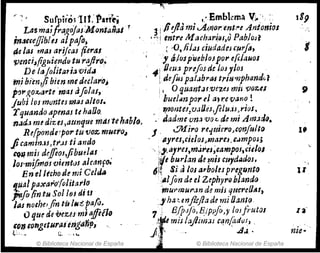 Suspiros III. Parte,
Las mas fragosas Montañas
inaccessibles al passo,
de las mas ariscas fieras
venci, siguiendo tu rastro.
De la solitaria vida
mi bien, si bien me declaro,
por gozarte mas à solas,
subi los montes mas altos.
Y quando apenas te hallo
nada me dizes, aunque mas te hablo.
Responde por tu voz, muero,
si caminas, tras ti ando
con mis deseos, si buelas
los mismos vientos alcanço.
En el lecho de mi Celda
qual paxaro solitario
passo sin tu Sol los dias
las noches sin tu luz passo.
O que de vezes mi affecto
con congeturas engaño,
Emblema V. 189
si està mi Amor entre Antonios
entre Macharios, ò Pablos?
O, si las ciudades cursas, 8
y à los pueblos por esclavos
Deus presos de los ylos
de sus palabras triumphando?
O quantas vezes mis vozes 9
burlan por el ayre vano!
montes, valles, selvas, rios,
dadme una voz de mi Amado.
Miro requiero, consulto 10
ayres, cielos, mares, campos;
y ayres, mares, campos, cielos
se burlan de mis cuydados.
Si à los arboles pregunto 11
al son de el Zephyro blando
murmuran de mis querellas,
y hazen fiesta de mi llanto.
Esposo, Esposo, y los frutos 12
de mis lastimas cansados,
Aa
nie-
© Biblioteca Nacional de España
© Biblioteca Nacional de España